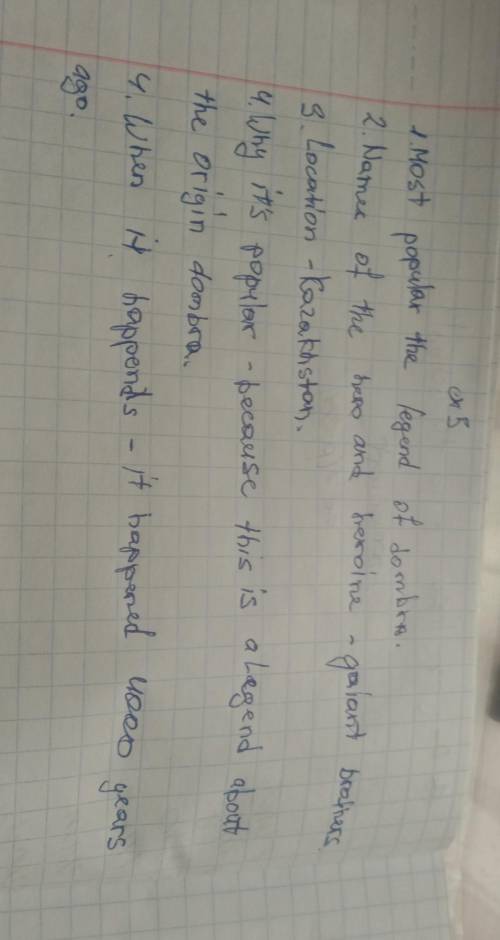 ex 5
1. Most popular the legend of dombra.
2. Names of the hero and heroine - galant brothers
3. Location - Kazakhstan.
4. Why it's popular - because this is a Legend about
the origin dombra.
4. When it happends - it happened 4000 years
ago.